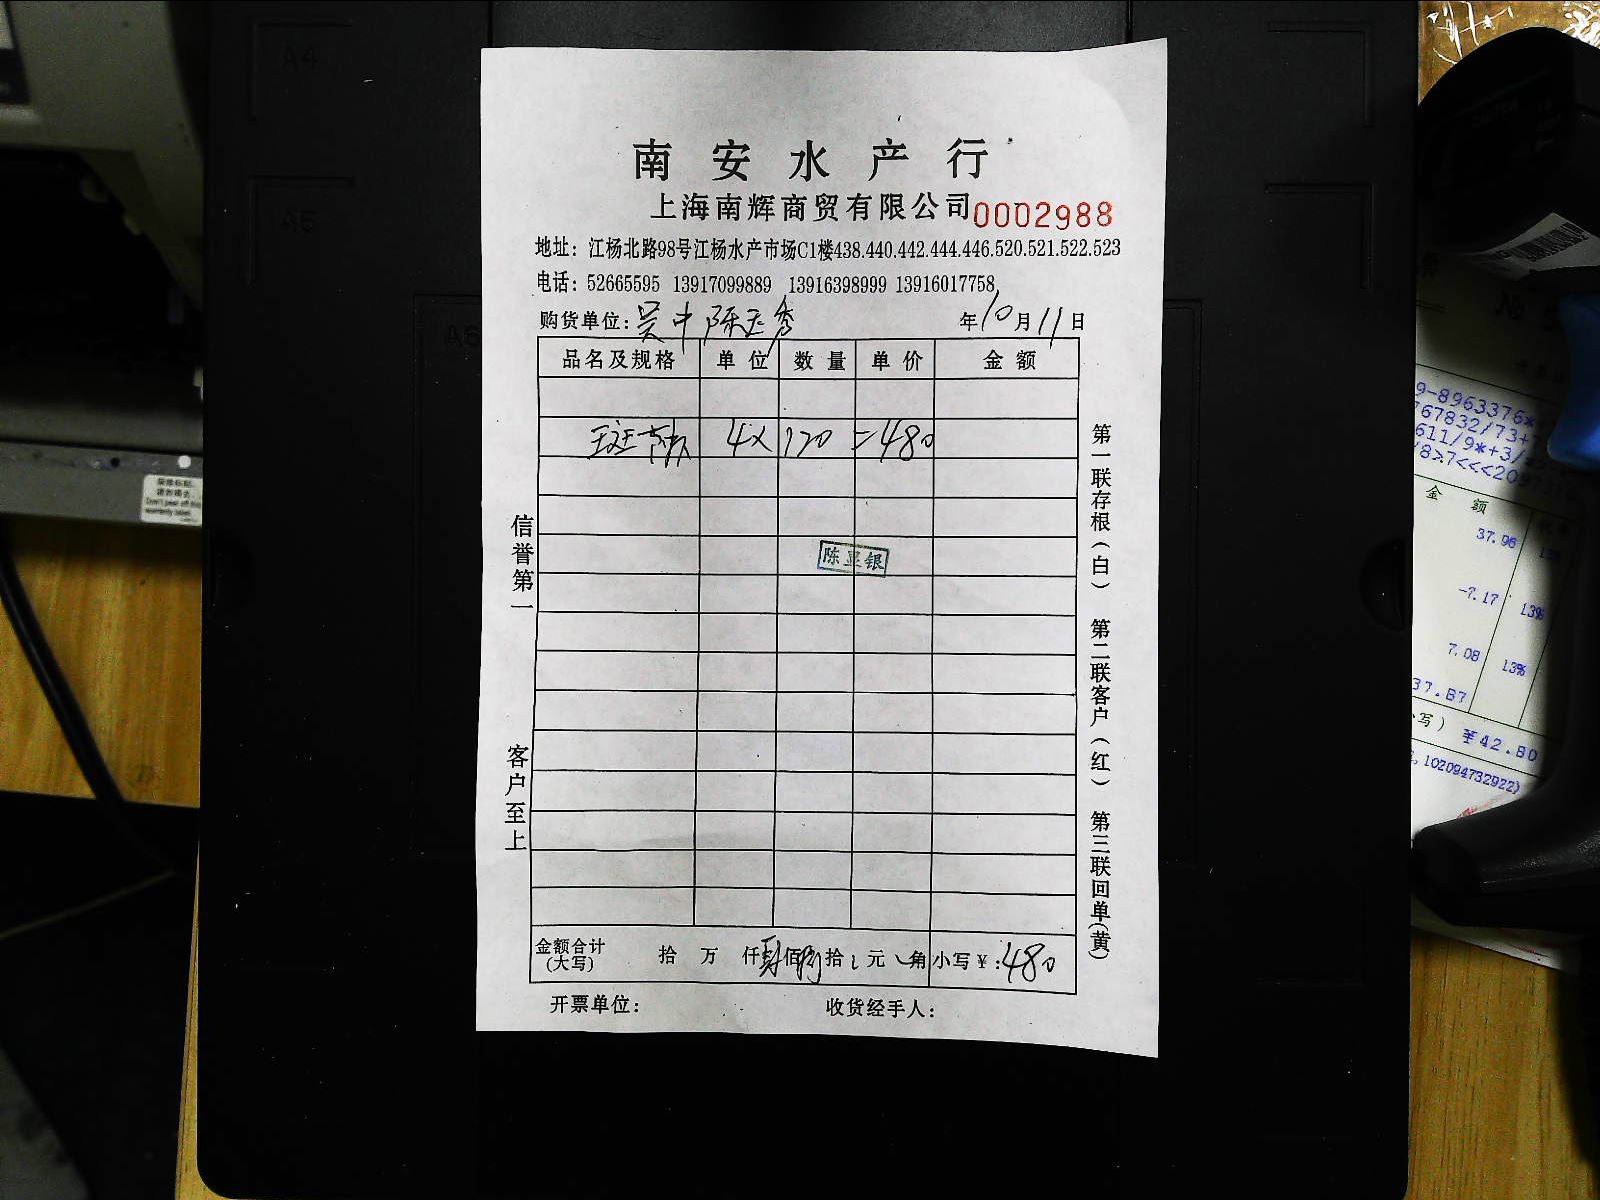 A4
A5
A6
南安水产行
上海南辉商贸有限公司 0002988
地址：江杨北路98号江杨水产市场C1楼438.440.442.444.446.520.521.522.523
电话：52665595 13917099889 13916398999 13916017758
购货单位：吴中陈玉秀 年10月11日
品名及规格 单位 数量 单价 金额
4× 120 =480
陈显银
信誉第一
客户至上
第一联存根（白） 第二联客户（红） 第三联回单（黄）
金额合计（大写） 拾 万 仟肆佰捌拾 元 角 小写￥:480
开票单位： 收货经手人：
金 额
37.96
-7.17 13%
7.08 13%
37.87
￥42.80
102094732922)